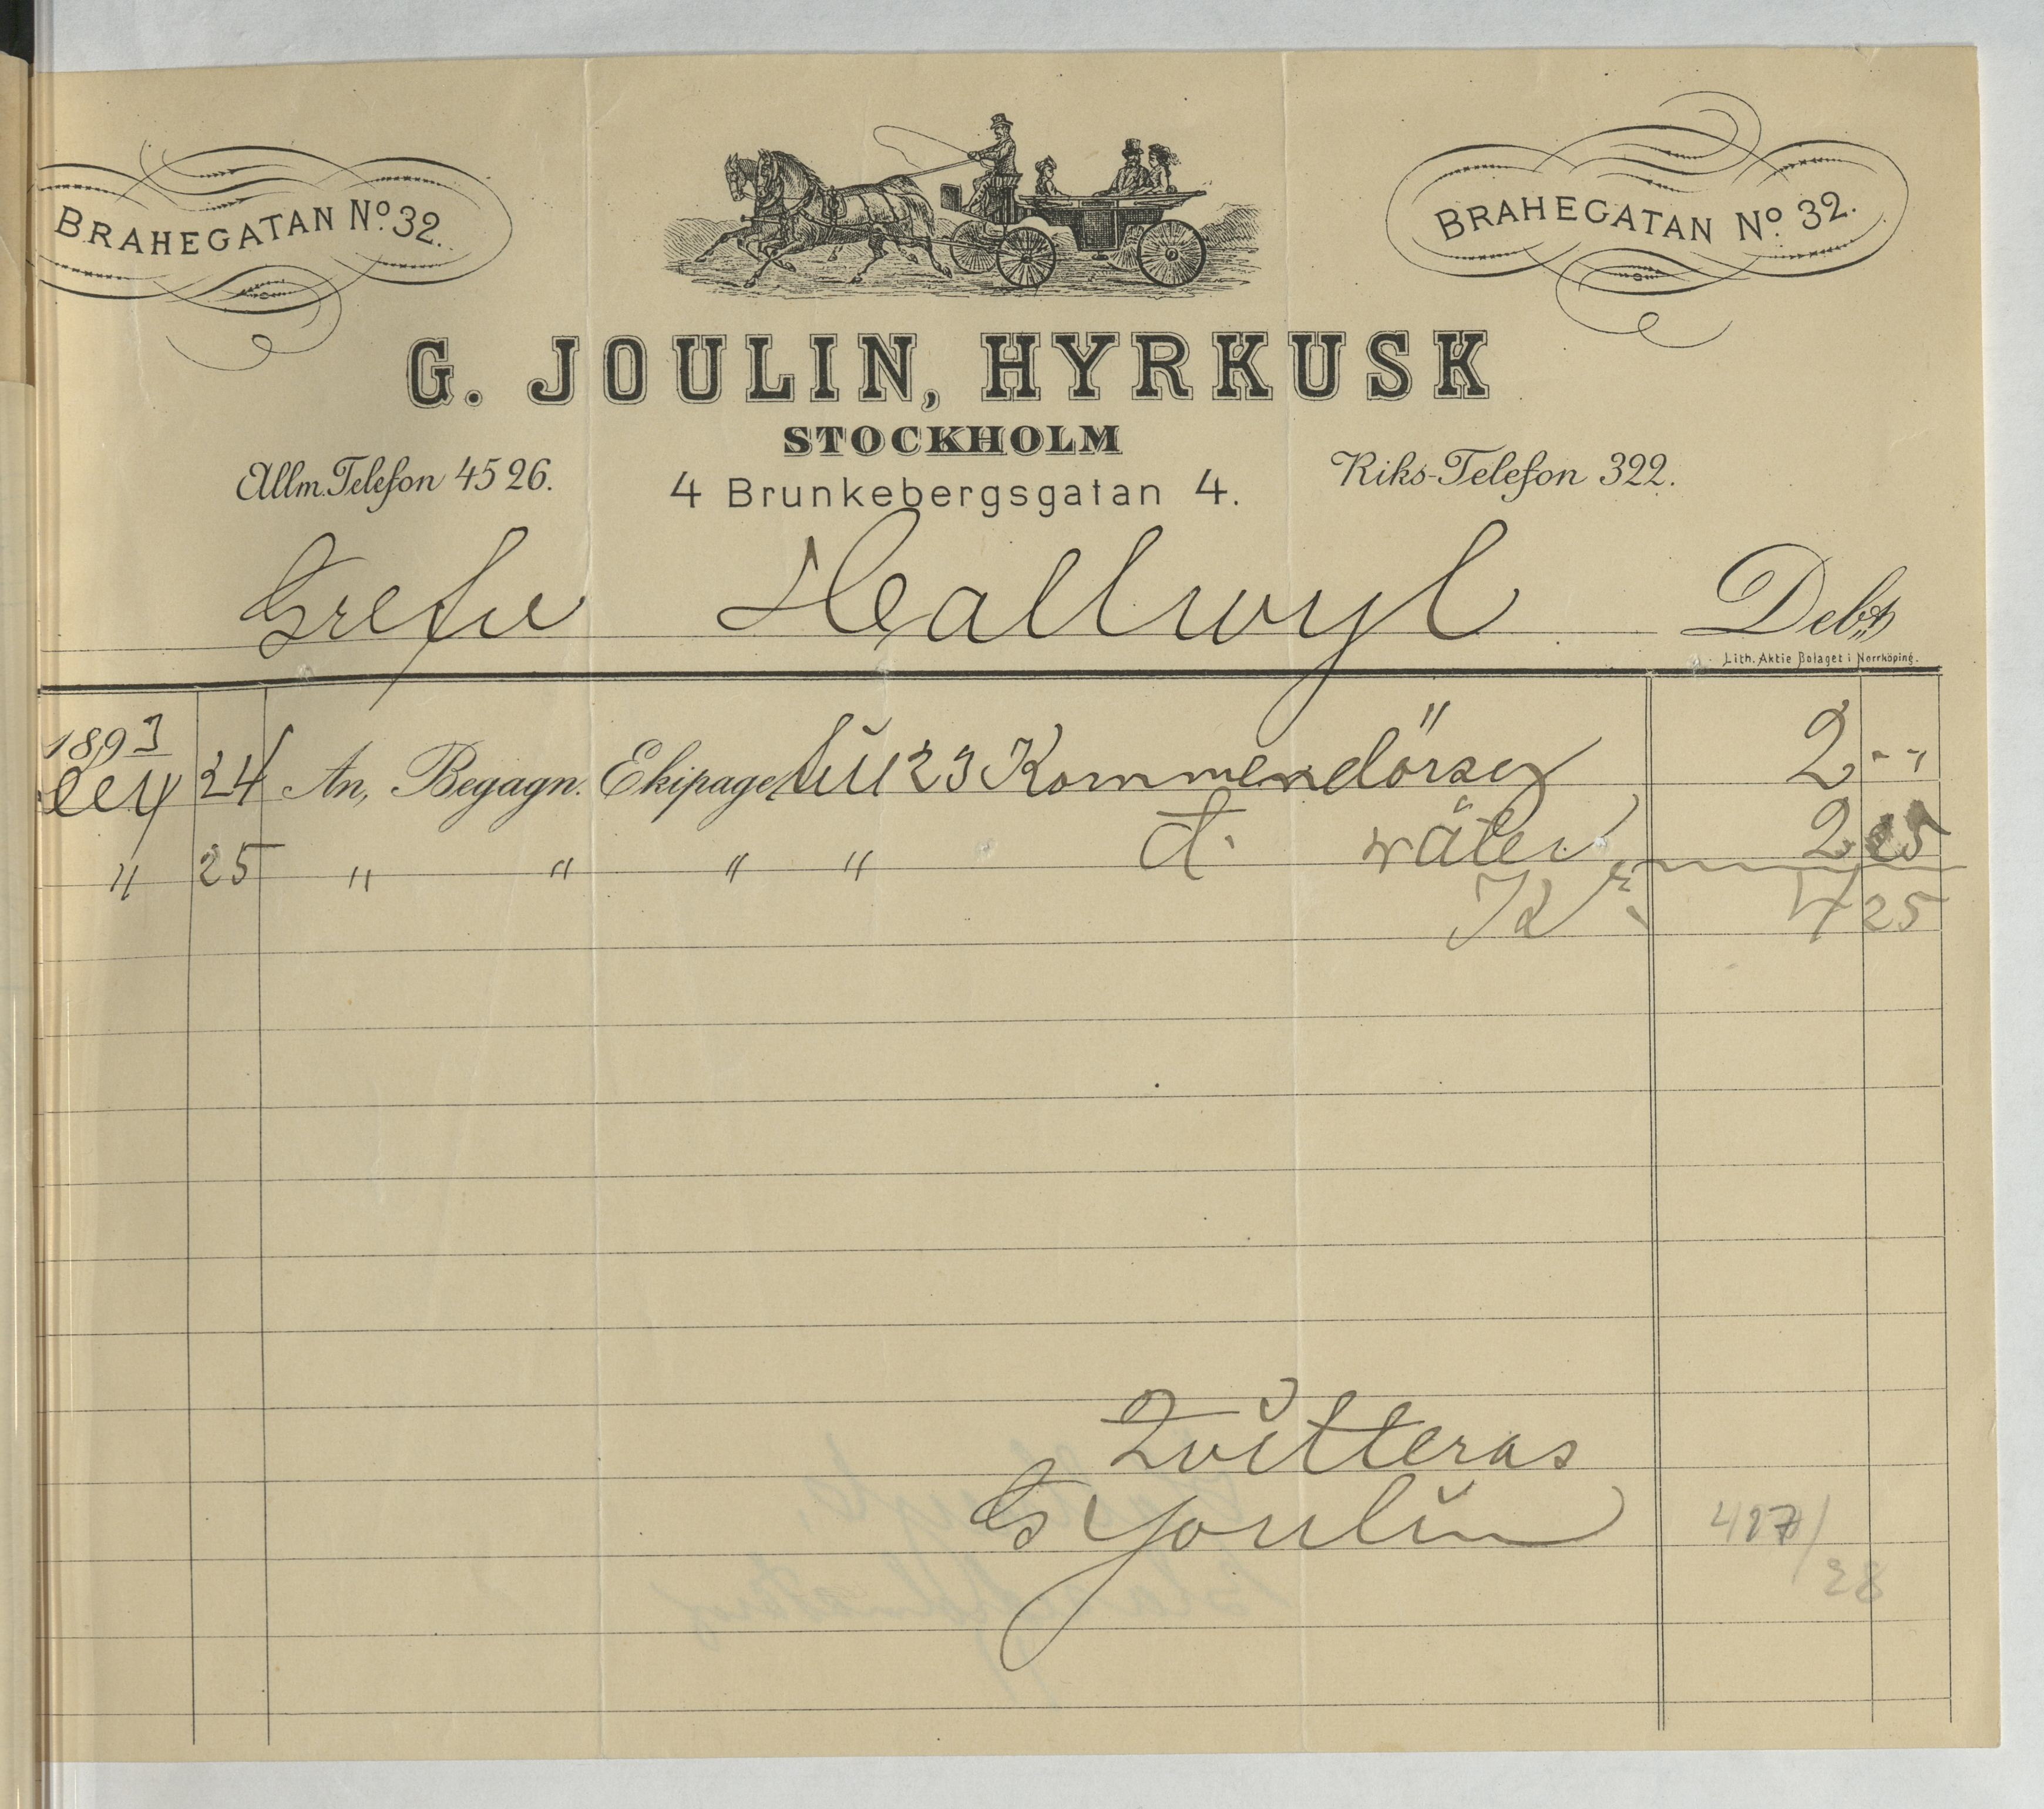 BRAHEGATAN No. 32.
BRAHEGATAN No 32.
G. JOULIN, HYRKUSK
STOCKHOLM
Allm. Telefon 4526.
4 Brunkebergsgatan 4.
Riks-Telefon 322.
Grefve Hallwyl Debet
Lith. Aktie Bolaget i Norrköping.
1893
24 An, Begagn. Ekipage till 23 Kommendörsg 2 - -
" 25 " " " " d. 2 25
Kr 4 25
Qvitteras
G Joulin
417/
28